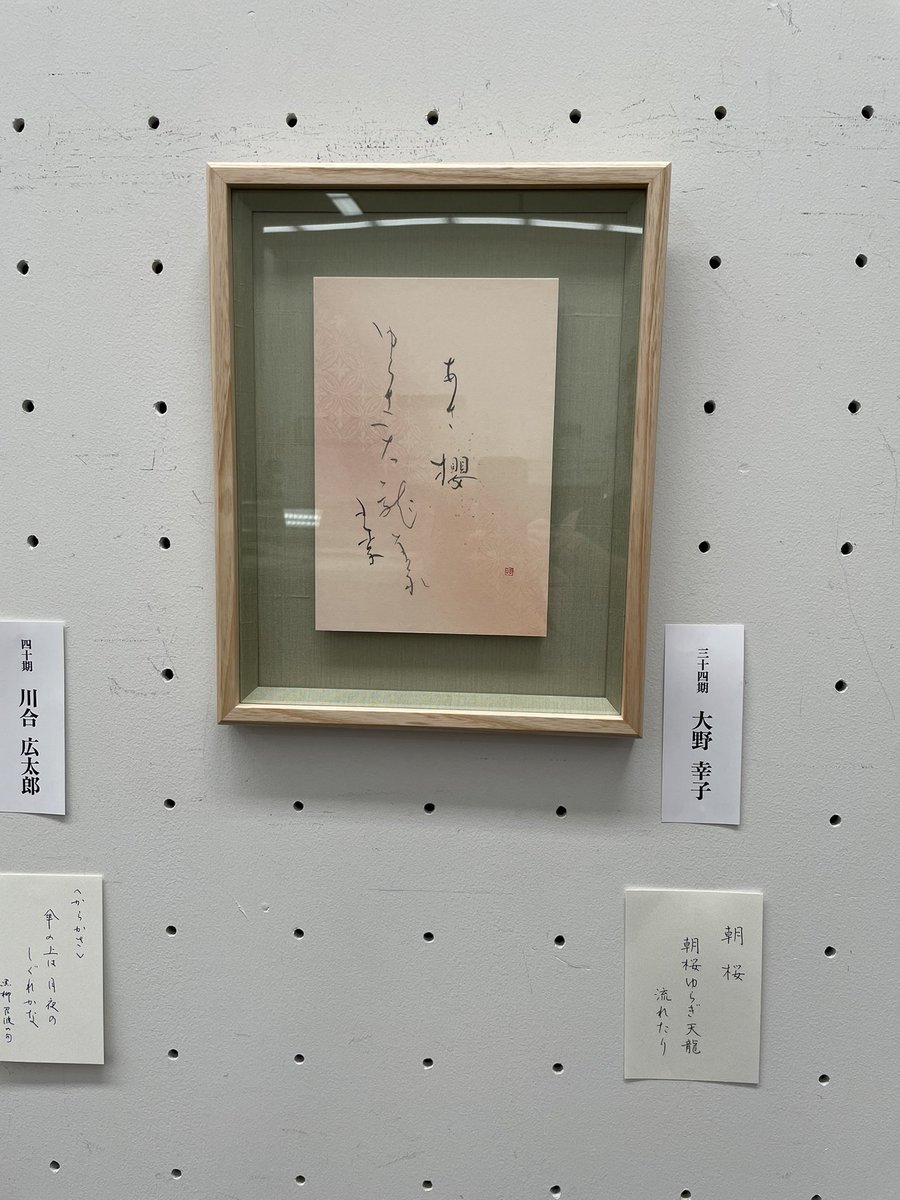 あさ櫻
ゆらき天龍
三十四期 大野 幸子
朝桜
朝桜ゆらぎ天龍
流れたり
四十期 川合 広太郎
〈からかさ〉
傘の上は月夜の
しぐれかな
黒柳召波の句